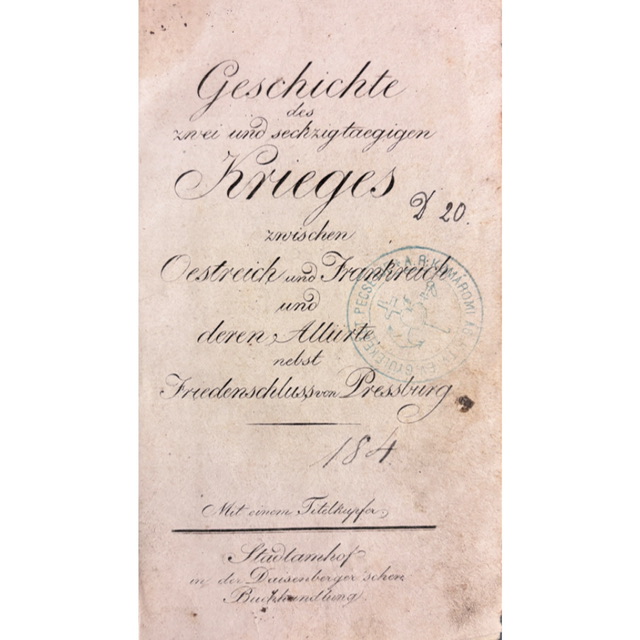 Geschichte
des
zwei und sechzigtaegigen
Krieges
D 20.
zwischen
Oestreich und Frankreich
und
deren Alliirte,
nebst
Friedenschluss von Pressburg
184.
Mit einem Titelkupfer,
Stadtamhof
in der Daisenberger'schen
Buchhandlung.
A. R. KOMÁROMI